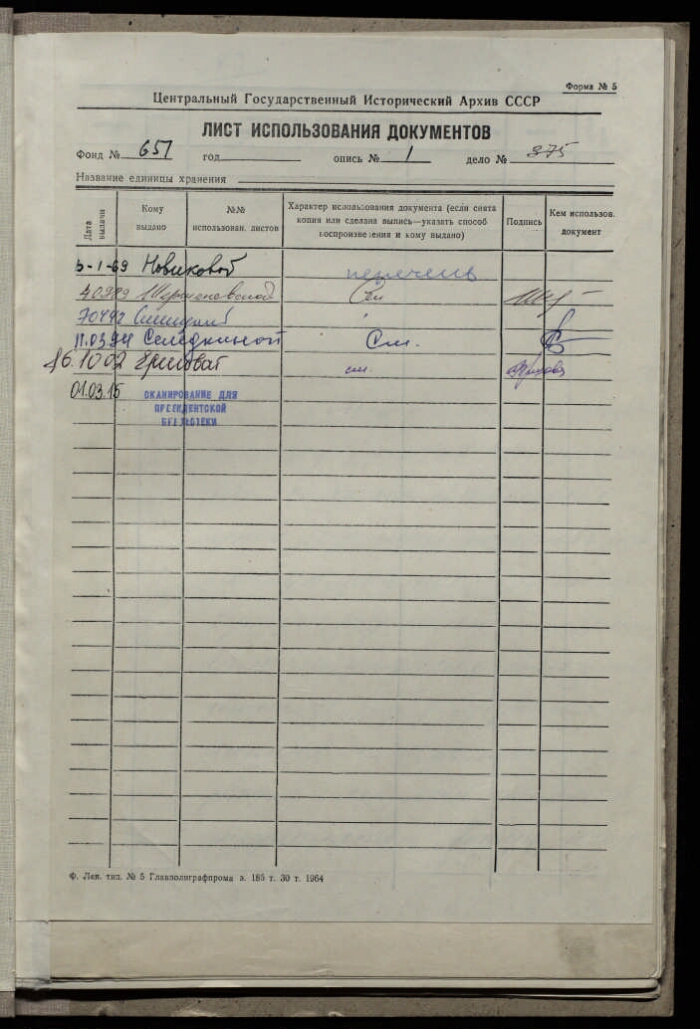 Форма № 5
Центральный Государственный Исторический Архив СССР
ЛИСТ ИСПОЛЬЗОВАНИЯ ДОКУМЕНТОВ
Фонд № 651 год опись № 1 дело № 875
Название единицы хранения
Дата выдачи
Кому выдано
№№ использован. листов
Характер использования документа (если снята копия или сделана выпись—указать способ воспроизведения и кому выдано)
Подпись
Кем использов. документ
3-1-69 Новиковой перечень
См
70492
11.03.94 Селёдкиной См.
16.10 02 см.
01.03.15 СКАНИРОВАНИЕ ДЛЯ
ПРЕЗИДЕНТСКОЙ
БИБЛИОТЕКИ
Ф. Лен. тип. № 5 Главполиграфпрома з. 185 т. 30 т. 1964